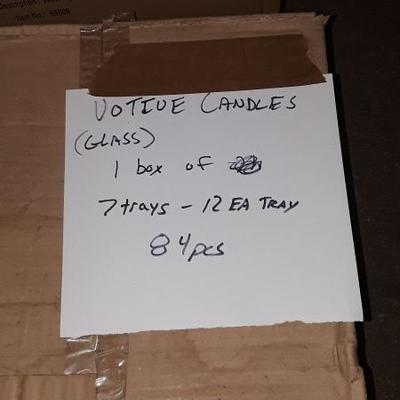 Description:
Item No.: 66000
VOTIVE CANDLES
(GLASS)
1 box of
7 trays - 12 EA TRAY
84 pcs